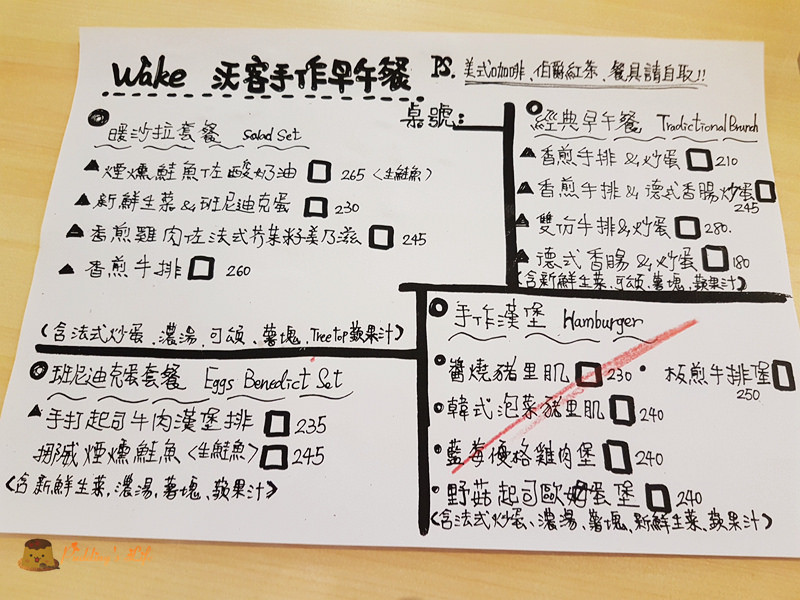 Wake 沃客手作早午餐
PS. 美式咖啡、伯爵紅茶、餐具請自取!!
桌號:
暖沙拉套餐 Salad Set
煙燻鮭魚佐酸奶油 265 <生鮭魚>
新鮮生菜&班尼迪克蛋 230
香煎雞肉佐法式芥茉籽美乃滋 245
香煎牛排 260
(含法式炒蛋、濃湯、可頌、薯塊、Treetop蘋果汁)
經典早午餐 Tradictional Brunch
香煎牛排&炒蛋 210
香煎牛排&德式香腸炒蛋 245
雙份牛排&炒蛋 280.
德式香腸&炒蛋 180
(含新鮮生菜、可頌、薯塊、蘋果汁)
班尼迪克蛋套餐 Eggs Benedict Set
手打起司牛肉漢堡排 235
挪威煙燻鮭魚<生鮭魚> 245
<含新鮮生菜,濃湯,薯塊、蘋果汁>
手作漢堡 Hamburger
醬燒豬里肌 230
板煎牛排堡 250
韓式泡菜豬里肌 240
藍莓優格雞肉堡 240
野菇起司歐姆蛋堡 240
(含法式炒蛋、濃湯、薯塊、新鮮生菜、蘋果汁)